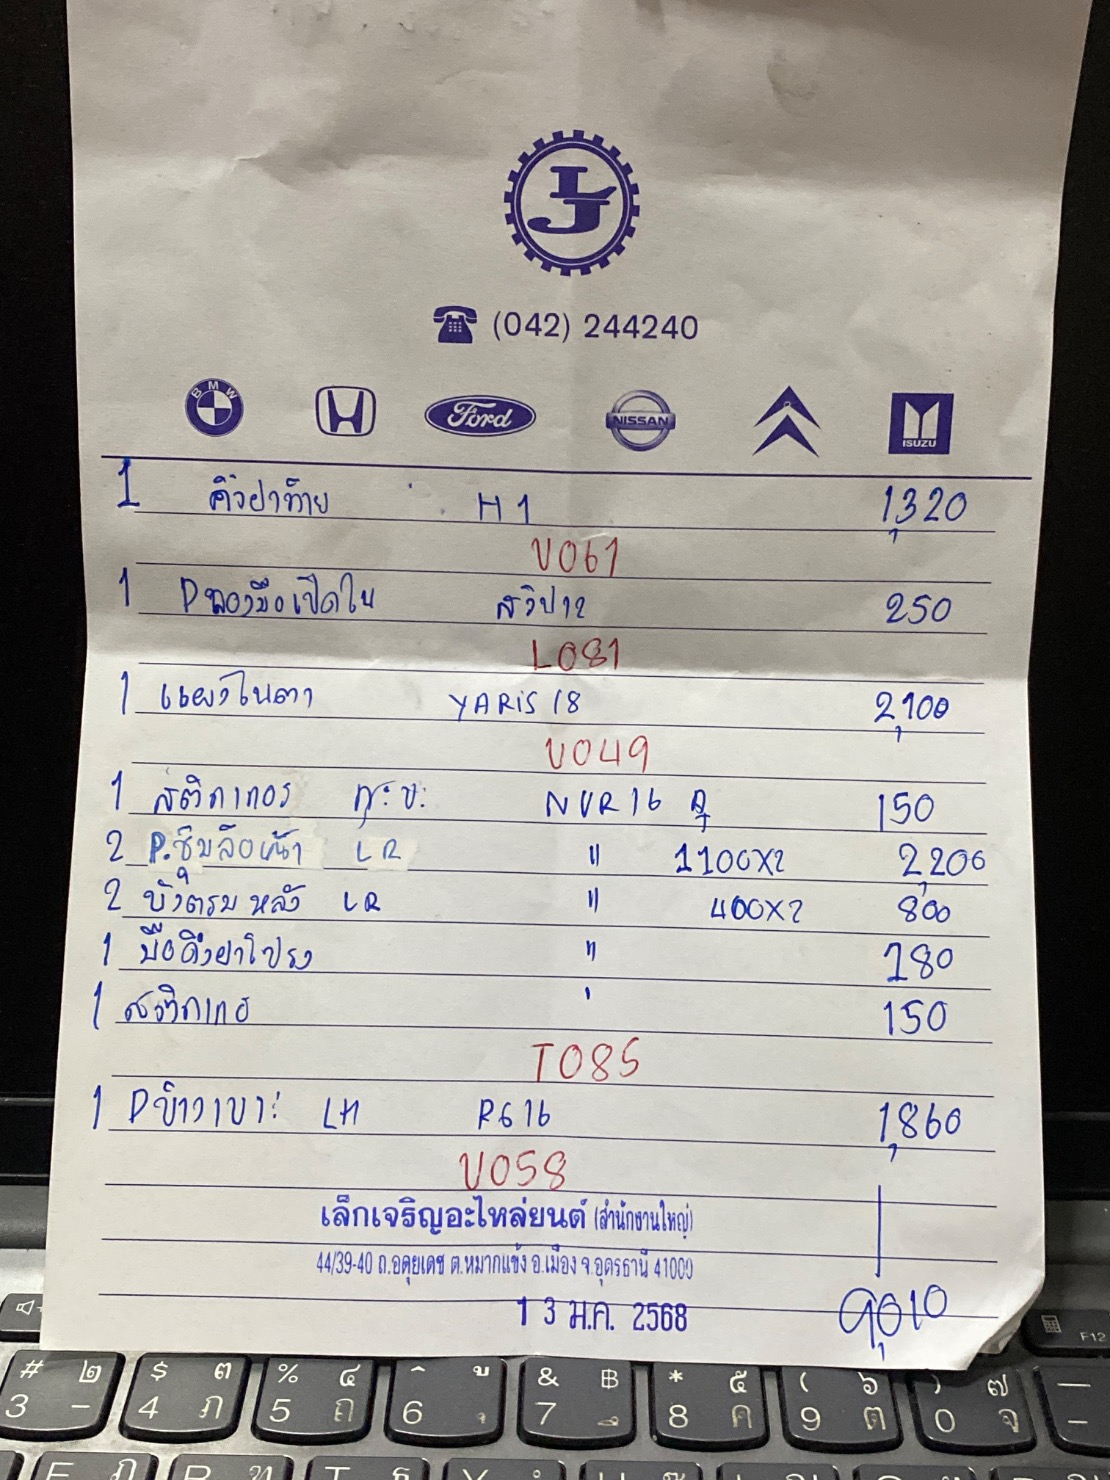 LJ
(042) 244240
BMW Ford NISSAN ISUZU
1 คิ้วฝาท้าย H1 1,320
V061
1 Pรองมือเปิดใน 250
L081
1 แผงไฟตา YARIS 18 2,100
V049
1 สติกเกอร์ NVR16 150
2 P.ซุ้มล้อหน้า LR " 1100X2 2,200
2 บังตรม หลัง LR " 400X2 800
1 มือดึงฝาโปรง " 180
1 สติกเกอ ' 150
T085
1 Pข้างเบาะ LH RG16 1,860
V058
เล็กเจริญอะไหล่ยนต์ (สำนักงานใหญ่)
44/39-40 ถ.อดุยเดช ต.หมากแข้ง อ.เมือง จ.อุดรธานี 41000
1 3 ม.ค. 2568 9,010
F12
# ๒ $ ๓ % ๔ ^ ู & ฿ * ๕ ( ๖ ) ๗
3 - 4 ภ 5 ถ 6 ุ 7 ึ 8 ค 9 ต 0 จ